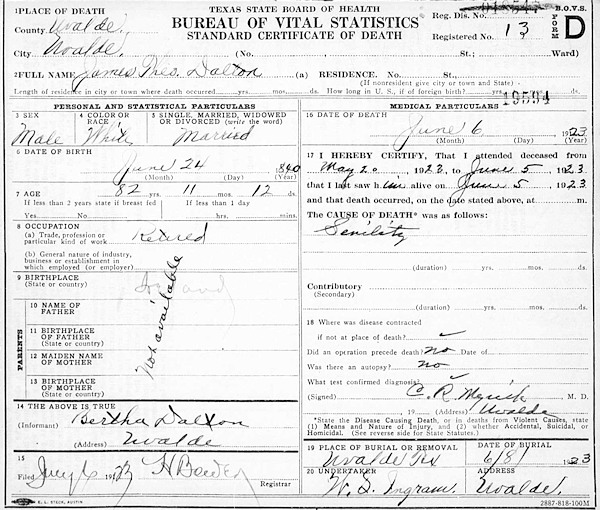 1 PLACE OF DEATH
TEXAS STATE BOARD OF HEALTH
B.O.V.S.
County Uvalde.
BUREAU OF VITAL STATISTICS
Reg. Dis. No.
FORM D
City Uvalde
STANDARD CERTIFICATE OF DEATH
Registered No. 13
(No. St.; Ward)
2 FULL NAME James Theo. Dalton (a) RESIDENCE. No. St.;
(If nonresident give city or town and State)
Length of residence in city or town where death occurred yrs. mos. ds. How long in U. S., if of foreign birth? yrs. mos. ds.
PERSONAL AND STATISTICAL PARTICULARS
3 SEX
Male
4 COLOR OR RACE
White
5 SINGLE, MARRIED, WIDOWED
OR DIVORCED (write the word)
Married
6 DATE OF BIRTH
June 24 1840
(Month) (Day) (Year)
7 AGE 82 yrs. 11 mos. 12 ds.
If less than 2 years state if breast fed If less than 1 day
Yes No hrs. mins.
8 OCCUPATION
(a) Trade, profession or
particular kind of work Retired
(b) General nature of industry,
business or establishment in
which employed (or employer)
9 BIRTHPLACE
(State or country)
PARENTS
10 NAME OF
FATHER
11 BIRTHPLACE
OF FATHER
(State or country)
12 MAIDEN NAME
OF MOTHER
13 BIRTHPLACE
OF MOTHER
(State or country)
Not available
14 THE ABOVE IS TRUE
(Informant) Bertha Dalton
(Address) Uvalde
15
Filed 1923
Registrar
E. L. STECK, AUSTIN
MEDICAL PARTICULARS 19594
16 DATE OF DEATH
June 6 1923
(Month) (Day) (Year)
17 I HEREBY CERTIFY, That I attended deceased from
May 20 1923, to June 5 1923
that I last saw him alive on June 5 1923
and that death occurred, on the date stated above, at m.
The CAUSE OF DEATH* was as follows:
Senility
(duration) yrs. mos. ds.
Contributory
(Secondary)
(duration) yrs. mos. ds.
18 Where was disease contracted
if not at place of death?
Did an operation precede death? no Date of
Was there an autopsy? no
What test confirmed diagnosis?
(Signed) C. R. M. D.
19 (Address) Uvalde
*State the Disease Causing Death, or in deaths from Violent Causes, state
(1) Means and Nature of Injury, and (2) whether Accidental, Suicidal, or
Homicidal. (See reverse side for State Statutes.)
19 PLACE OF BURIAL OR REMOVAL
Uvalde
DATE OF BURIAL
6/8/ 1923
20 UNDERTAKER
W. L. Ingram.
ADDRESS
Uvalde.
2887-818-100M